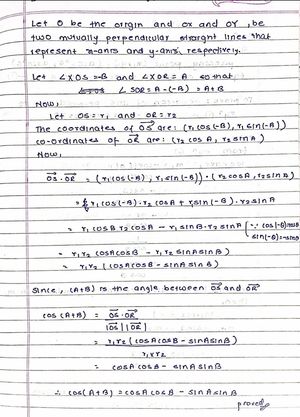 Let O be the origin and OX and OY, be
two mutually perpendicular straight lines that
represent x-axis and y-axis, respectively.
Let ∠XOS=-B and ∠XOR = A so that
∠SOR = A-(-B) = A+B
Now,
Let OS = r₁ and OR = r₂
The coordinates of OS→ are: (r₁ cos(-B), r₁ sin(-B))
co-ordinates of OR→ are: (r₂ cos A, r₂ sin A)
Now,
OS→ · OR→ = (r₁ cos(-B), r₁ sin(-B)) · (r₂ cosA, r₂ sinA)
= r₁ cos(-B) · r₂ cos A + r₁ sin(-B) · r₂ sin A
= r₁ cosB r₂ cosA - r₁ sinB · r₂ sin A [∵ cos(-B)=cosB
sin(-B)=-sinB]
= r₁r₂ cosA cosB - r₁r₂ sinA sinB
= r₁r₂ (cosA cosB - sinA sin B)
Since, (A+B) is the angle between OS→ and OR→
cos (A+B) = OS→ · OR→
|OS→| |OR→|
= r₁r₂ (cosA cosB - sinA sinB)
r₁r₂
= cosA cosB - sinA sinB
∴ cos(A+B) = cosA cosB - sinA sinB
proved